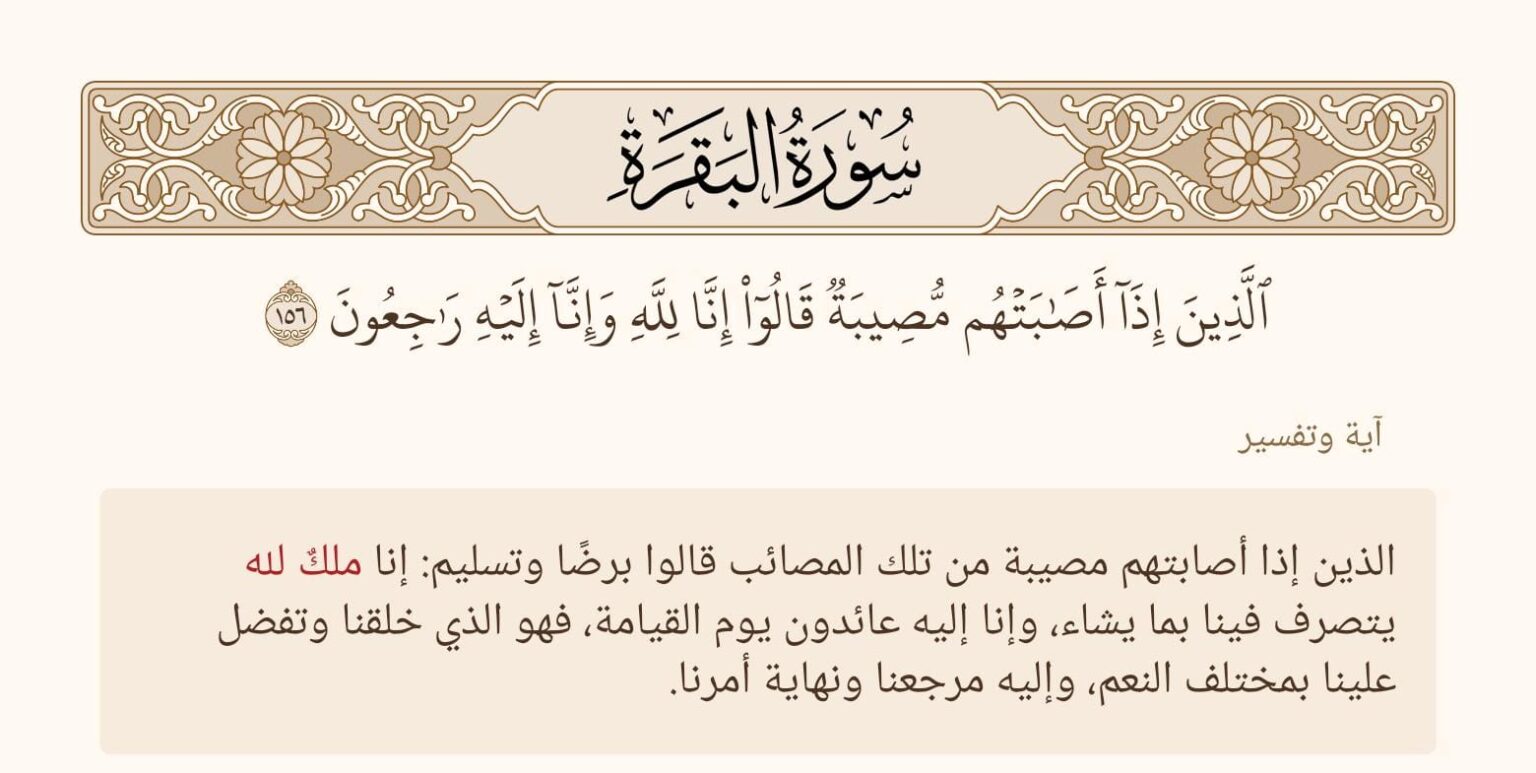 سُورَةُ البَقَرَةِ
ٱلَّذِينَ إِذَآ أَصَٰبَتۡهُم مُّصِيبَةٞ قَالُوٓاْ إِنَّا لِلَّهِ وَإِنَّآ إِلَيۡهِ رَٰجِعُونَ ١٥٦
آية وتفسير
الذين إذا أصابتهم مصيبة من تلك المصائب قالوا برضًا وتسليم: إنا ملكٌ لله
يتصرف فينا بما يشاء، وإنا إليه عائدون يوم القيامة، فهو الذي خلقنا وتفضل
علينا بمختلف النعم، وإليه مرجعنا ونهاية أمرنا.